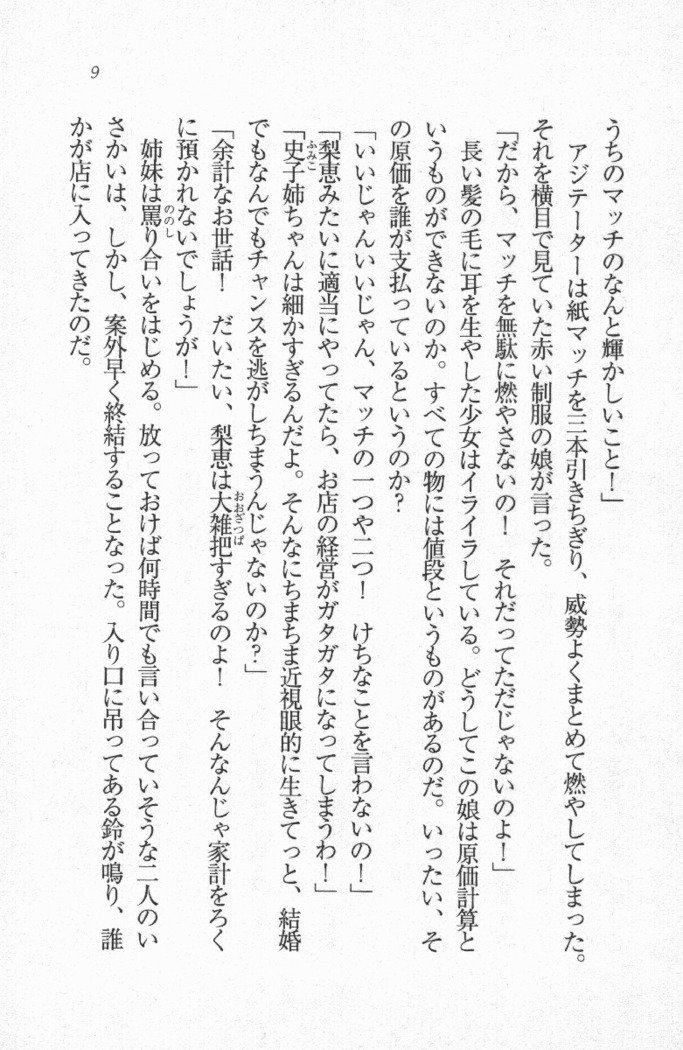 9
うちのマッチのなんと輝かしいこと！」
アジテーターは紙マッチを三本引きちぎり、威勢よくまとめて燃やしてしまった。
それを横目で見ていた赤い制服の娘が言った。
「だから、マッチを無駄に燃やさないの！　それだってただじゃないのよ！」
長い髪の毛に耳を生やした少女はイライラしている。どうしてこの娘は原価計算と
いうものができないのか。すべての物には値段というものがあるのだ。いったい、そ
の原価を誰が支払っているというのか？
「いいじゃんいいじゃん、マッチの一つや二つ！　けちなことを言わないの！」
「梨恵みたいに適当にやってたら、お店の経営がガタガタになってしまうわ！」
「史子姉ちゃんは細かすぎるんだよ。そんなにちまちま近視眼的に生きてっと、結婚
ふみこ
でもなんでもチャンスを逃がしちまうんじゃないのか？」
「余計なお世話！　だいたい、梨恵は大雑把すぎるのよ！　そんなんじゃ家計をろく
おおざっぱ
に預かれないでしょうが！」
姉妹は罵り合いをはじめる。放っておけば何時間でも言い合っていそうな二人のい
ののし
さかいは、しかし、案外早く終結することなった。入り口に吊ってある鈴が鳴り、誰
かが店に入ってきたのだ。